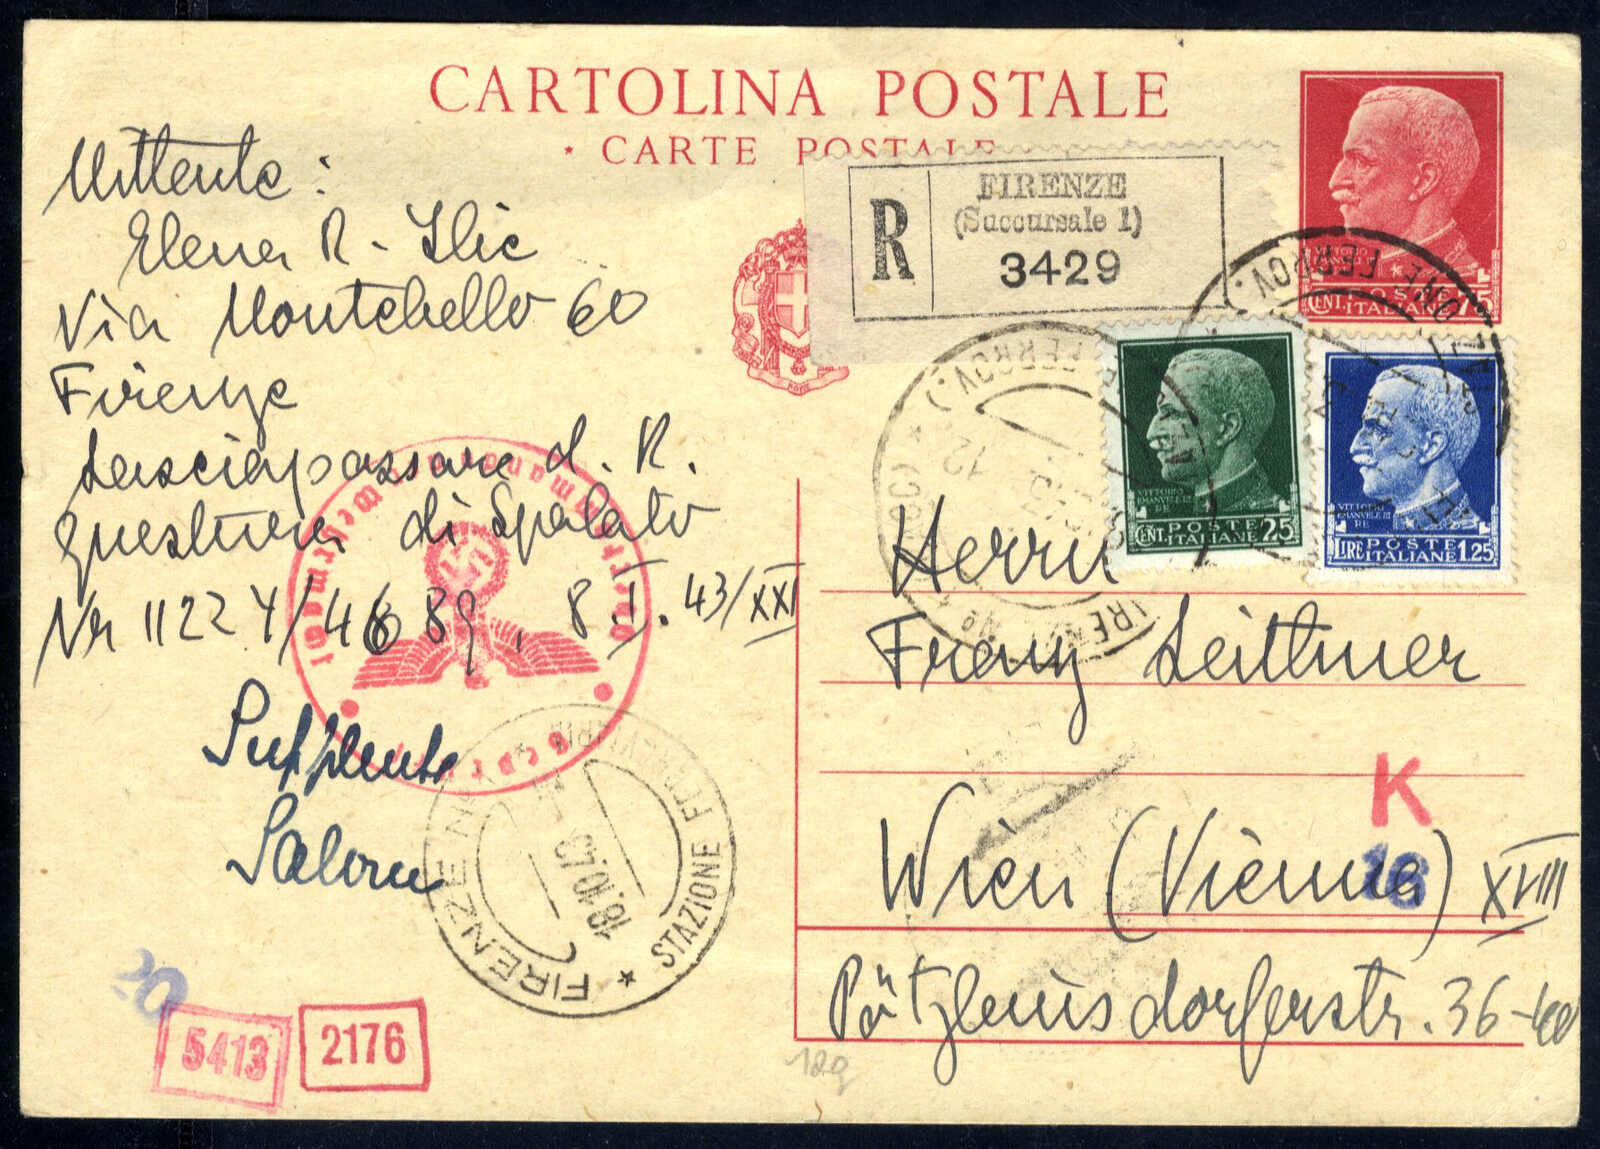 CARTOLINA POSTALE
* CARTE POSTALE
R
FIRENZE
(Succursale 1)
3429
Mittente:
Elena R - Ilic
Via Montebello 60
Firenze
Lasciapassare d. R.
Questura di Spalato
Nr 11224/46689, 8.I.43/XXI
Supplente
VITTORIO
CENT. 75
VITTORIO
EMANVELE III
RE
POSTE
CENT. ITALIANE 25
VITTORIO
EMANVELE III
RE
POSTE
LIRE ITALIANE 1.25
Herrn
Franz Leittner
K
16
Wien (Vienna) XVIII
Pötzleinsdorferstr. 36-40
FIRENZE
STAZIONE FERROVIARIA
18.10.43
Oberkommando der Wehrmacht
Geprüft
20
5413
2176
189